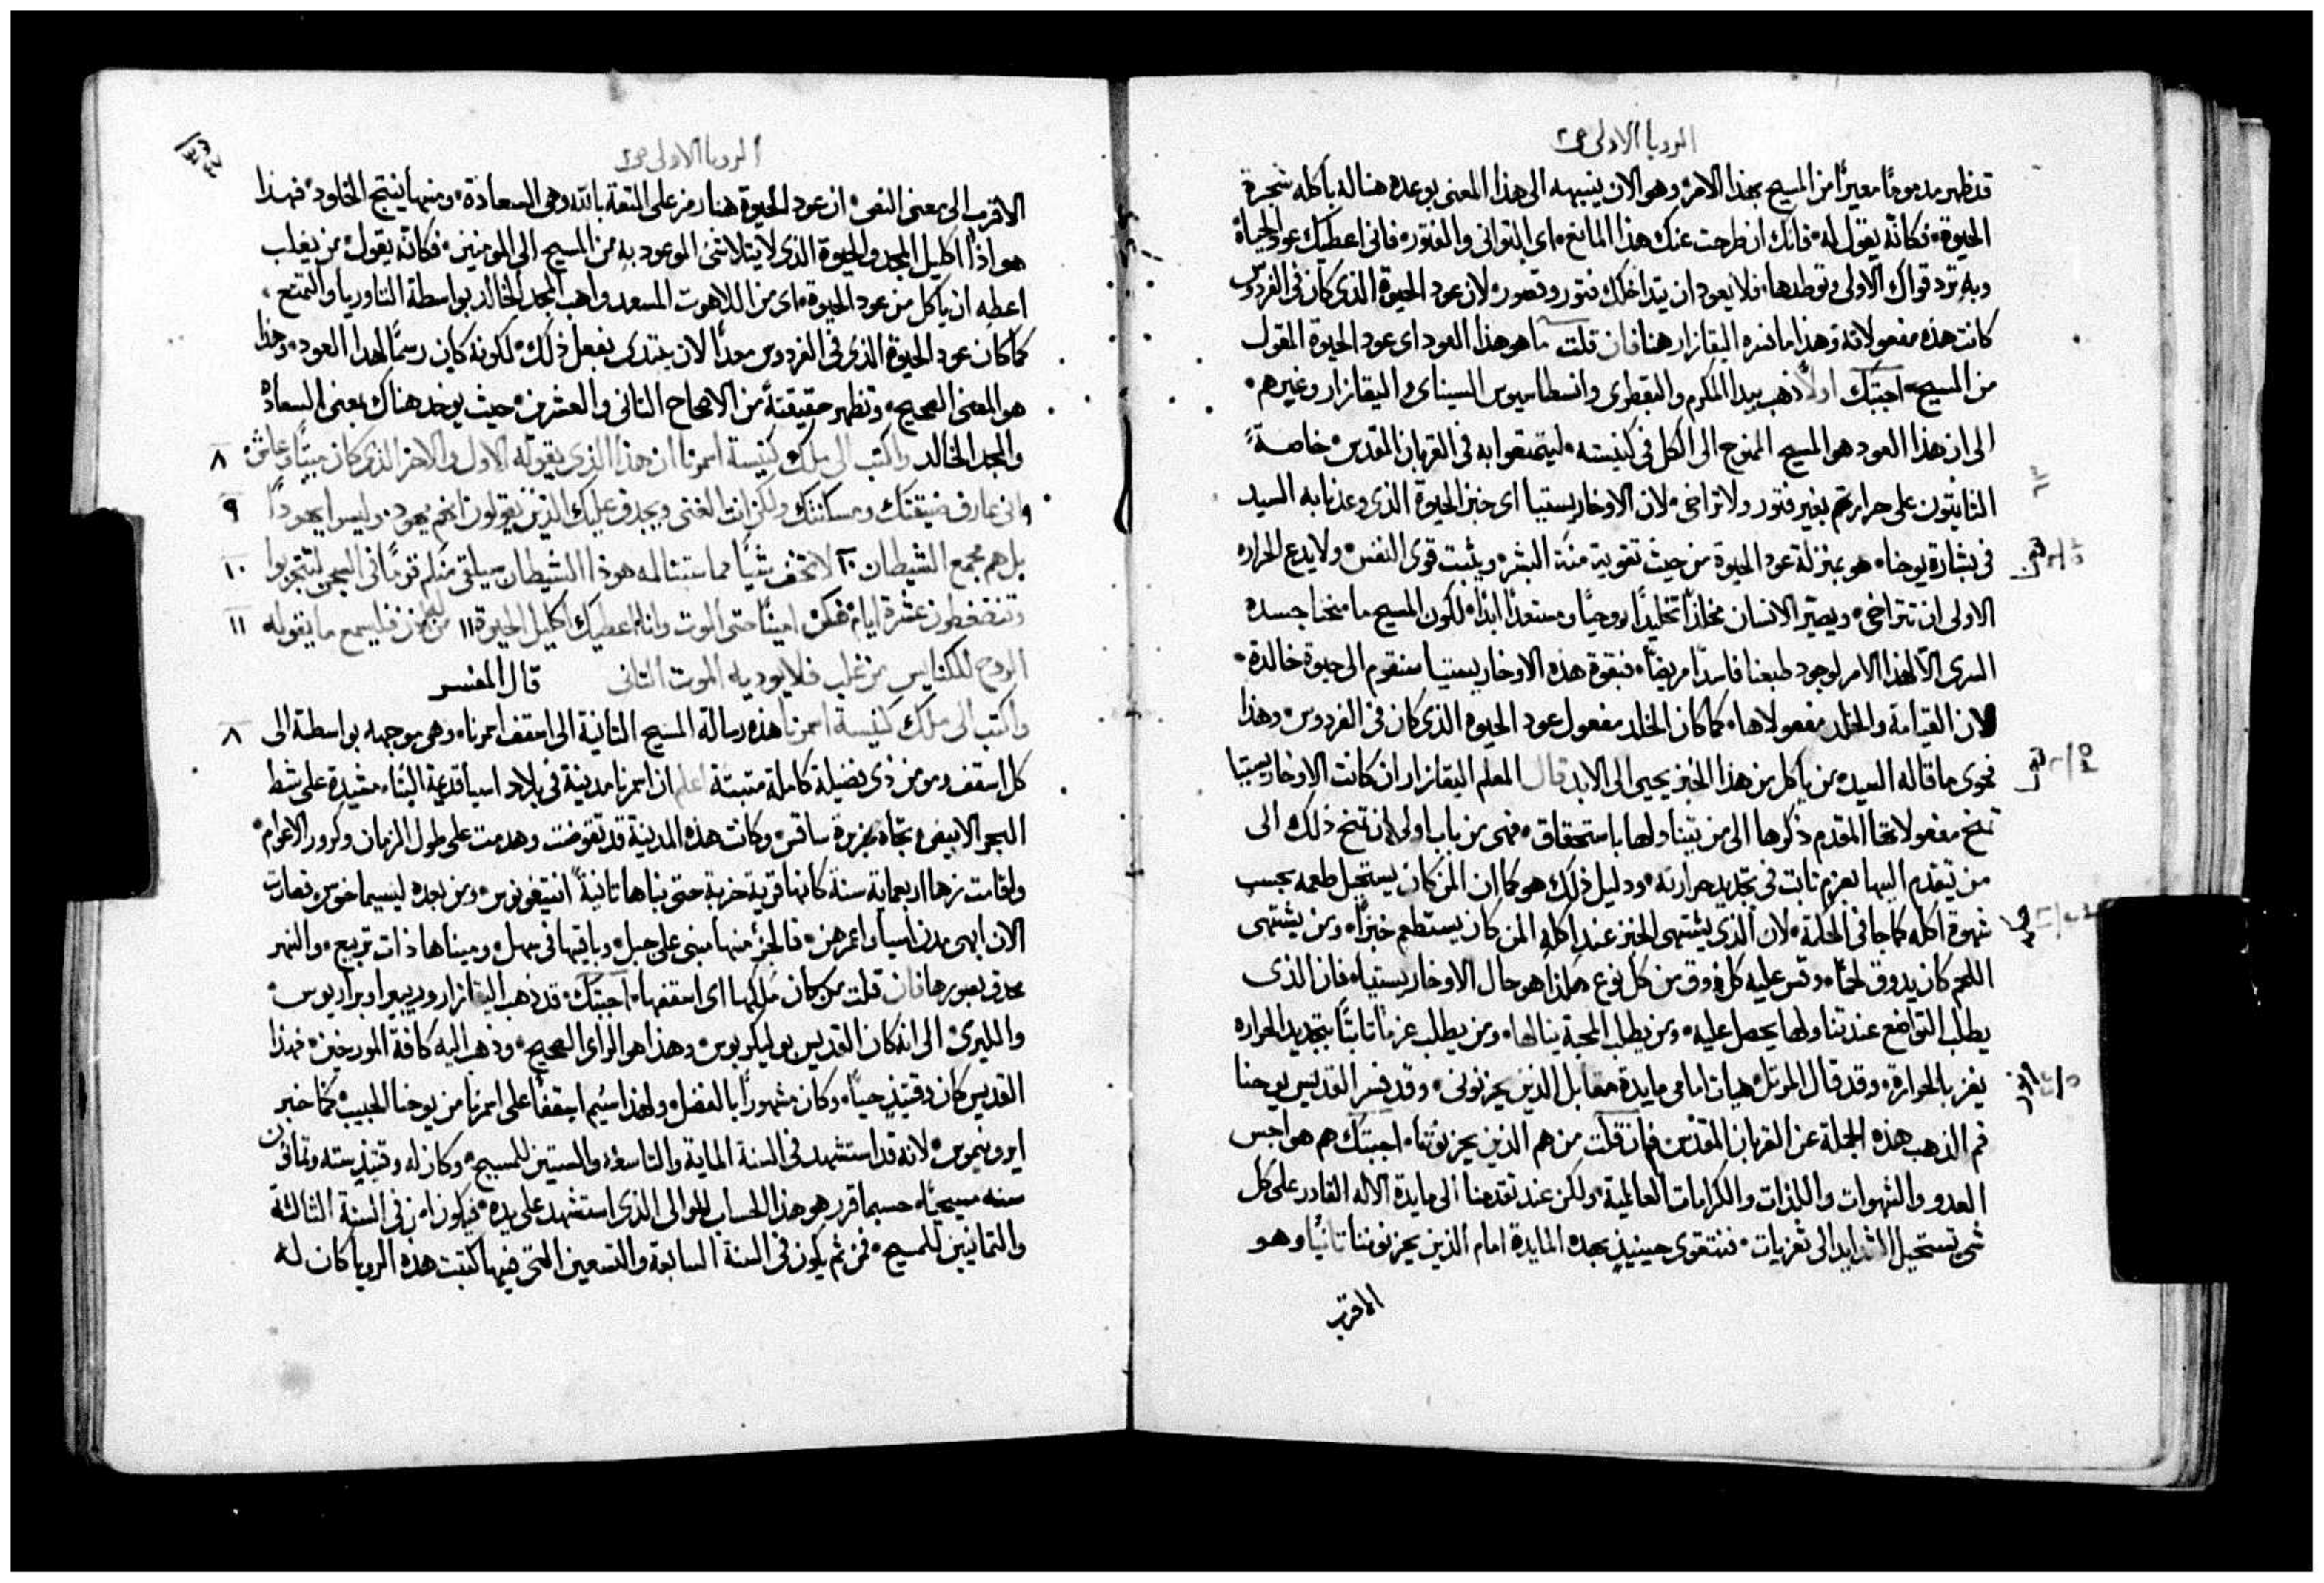 الرويا الاولى ص٢
قد ظهر مذمومًا معيرًا من المسيح بهذا الامر وهو الان ينبهه الى هذا المعنى بوعده هنا له باكله شجرة
الحيوة فكانه يقول له فانك ان طرحت عنك هذا المانع اى التوانى والفتور فانى اعطيك عود الحياة
وبه ترد قواك الاولى وتوطدها فلا يعود ان يتداخلك فتور وقصور لان عود الحيوة الذى كان فى الفردوس
كانت هذه مفعولاته وهذا ما فسره اليقازار هنا فان قلت ما هو هذا العود اى عود الحيوة المقول
من المسيح اجبتك اولاً ذهب بيدا المكرم والبقطرى وانسطاسيوس السيناى واليقازار وغيرهم
الى ان هذا العود هو المسيح الممنوح الى الكل فى كنيسته ليتمتعوا به فى القربان المقدس خاصةً
الثابتون على حرارتهم بغير فتور ولا تراخى لان الاوخاريستيا اى خبز الحيوة الذى وعدنا به السيد
فى بشارة يوحنا هو بمنزلة عود الحيوة من حيث تقوية منّة البشر ويثبت قوى النفس ولا يدع الحراره
الاولى ان تتراخى ويصيّر الانسان مخلدًا تخليدًا روحيًا ومستعدًا ابدًا لكون المسيح ما منحنا جسده
السرى الا لهذا الامر لوجود طبعنا فاسدًا مريضًا فبقوة هذه الاوخاريستيا سنقوم الى حيوة خالدة
لان القيامة والخلد مفعولاها كما كان الخلد مفعول عود الحيوة الذى كان فى الفردوس وهذا
فحوى ما قاله السيد من ياكل من هذا الخبز يحيى الى الابد قال المعلم اليقازار ان كانت الاوخاريستيا
تمنح مفعولاتها المقدم ذكرها الى من يتناولها باستحقاق فهى من باب اولى ان تمنح ذلك الى
من يتقدم اليها بعزم ثابت فى تجديد حرارته ودليل ذلك هو كما ان المن كان يستحيل طعمه بحسب
شهوة اكله كما جا فى الحكمة لان الذى يشتهى الخبز عند اكله المن كان يستطعم خبزًا ومن يشتهى
اللحم كان يذوق لحمًا وقس عليه كل ذوق من كل نوع هكذا هو حال الاوخاريستيا فان الذى
يطلب التواضع عند تناولها يحصل عليه ومن يطلب المحبة ينالها ومن يطلب عزمًا ثابتًا بتجديد الحراره
يفز بالحرارة وقد قال المرتل هيات امامى مايدة مقابل الذين يحزنونى وقد فسر القديس يوحنا
فم الذهب هذه الجملة عن القربان المقدس فان قلت من هم الذين يحزنوننا اجبتك هم هواجس
العدو والشهوات واللذات والكرامات العالمية ولكن عند تقدمنا الى مايدة الاله القادر على كل
شى تستحيل الشدايد الى تعزيات فنتقوى حينيذٍ بهذه المايدة امام الذين يحزنوننا ثانيًا وهو
الاقرب
الرويا الاولى ص٢
الاقرب الى معنى النص ان عود الحيوة هنا رمز على الثقة بالله وهى السعادة ومنها ينتج الخلود فهذا
هو اذًا اكليل المجد والحيوة الذى لا يتلاشى الموعود به من المسيح الى المومنين فكانه يقول من يغلب
اعطه ان ياكل من عود الحيوة اى من اللاهوت المسعد واهب المجد الخالد بواسطة الثاوريا والتمتع
كما كان عود الحيوة الذى فى الفردوس معدًا لان يبتدى بفعل ذلك لكونه كان رسمًا لهذا العود وهذا
هو المعنى الصحيح وتظهر حقيقته من الاصحاح الثانى والعشرين حيث يوخذ هناك بمعنى السعادة
والمجد الخالد واكتب الى ملاك كنيسة اسمرنا ان هذا الذى يقوله الاول والاخر الذى كان ميتًا وعاش ٨
٩ انى عارف ضيقتك ومسكنتك ولكن انت الغنى ويجدف عليك الذين يقولون انهم يهود وليسوا يهودًا ٩
بل هم مجمع الشيطان ١٠ لا تخف شيًا مما ستناله هوذا الشيطان سيلقى منكم قومًا فى السجن لتتجربوا ١٠
وتنضغطون عشرة ايام فكن امينًا حتى الموت وانا اعطيك اكليل الحيوة ١١ من له اذن فليسمع ما يقوله ١١
الروح للكنايس من غلب فلا يوديه الموت الثانى قال المفسر
واكتب الى ملاك كنيسة اسمرنا هذه رسالة المسيح الثانية الى اسقف اسمرنا وهى موجهه بواسطته الى ٨
كل اسقف ومومن ذى فضيلة كاملة مثبتة اعلم ان اسمرنا مدينة فى بلاد اسيا قديمة البنا مشيدة على شط
البحر الابيض تجاه جزيرة ساقس وكانت هذه المدينة قد تقوضت وهدمت على طول الزمان وكرور الاعوام
واقامت زها اربعماية سنة كانها قرية خربة حتى بناها ثانيةً انتيغونوس ومن بعده ليسيماخوس فصارت
الان ابهى مدن اسيا واعمرهن فالجز منها مبنى على جبل وباقيها فى سهل وميناها ذات تربيع والنهر
محدق بسورها فان قلت من كان ملاكها اى اسقفها اجبتك قد ذهب اليقازار وريبيرا وبراريوس
والليرى الى انه كان القديس بوليكربوس وهذا هو الراى الصحيح وذهب اليه كافة المورخين فهذا
القديس كان وقتيذٍ حيًا وكان مشهورًا بالفضل ولهذا اسيم اسقفًا على اسمرنا من يوحنا الحبيب كما خبر
ايرونيموس لانه قد استشهد فى السنة الماية والتاسعة والستين للمسيح وكان له وقتيذٍ سته وثمانون
سنه مسيحيًا حسبما قرر هو هذا الحساب للوالى الذى استشهد على يده فيكون امن فى السنة الثالثة
والثمانين للمسيح فمن ثم يكون فى السنة السابعة والتسعين التى فيها كتبت هذه الرويا كان له